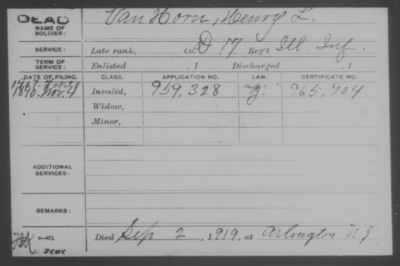 DEAD
NAME OF SOLDIER:
Van Horn, Henry L.
SERVICE:
Late rank, Co. D 17 Reg't Ill Inf.
TERM OF SERVICE:
Enlisted , 1 Discharged , 1
DATE OF FILING. CLASS. APPLICATION NO. LAW. CERTIFICATE NO.
1890. Nov. 4 Invalid, 959.328 g. 965.704
Widow,
Minor,
ADDITIONAL SERVICES:
REMARKS:
Died Sep 2, 1919, at Arlington N J